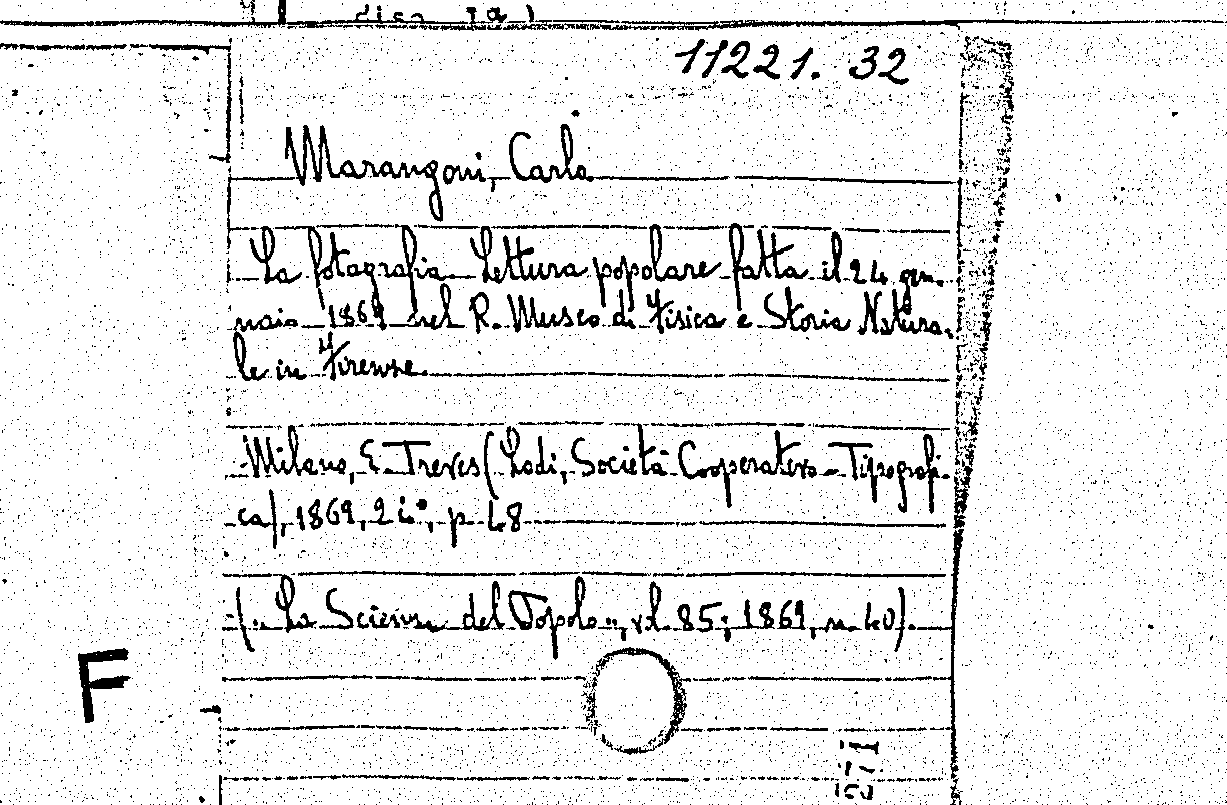 11221. 32
Marangoni, Carlo
La fotografia. Lettura popolare fatta il 24 gen-
naio 1869 nel R. Museo di Fisica e Storia Natura-
le in Firenze.
Milano, E. Treves (Lodi, Società Cooperativo-Tipografi-
ca), 1869, 24°, p. 48
(„La Scienza del Popolo", vol. 85; 1869, n. 40).
F